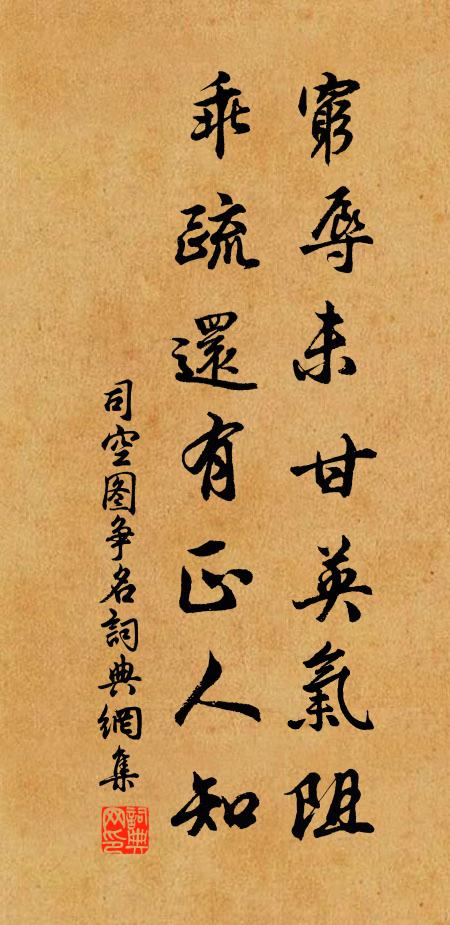 窮辱未甘英氣阻
乖疏還有正人知
司空图争名詞典網集
詞典网印